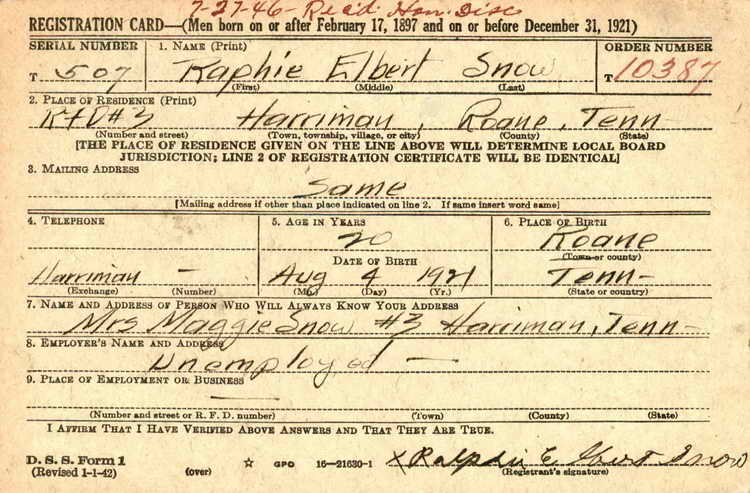 7-27-46- Rec'd Hon. Disc
REGISTRATION CARD—(Men born on or after February 17, 1897 and on or before December 31, 1921)
SERIAL NUMBER
1. NAME (Print)
ORDER NUMBER
T 507
Raphie Elbert Snow
T 10387
(First) (Middle) (Last)
2. PLACE OF RESIDENCE (Print)
RFD#3 Harriman, Roane, Tenn
(Number and street) (Town, township, village, or city) (County) (State)
[THE PLACE OF RESIDENCE GIVEN ON THE LINE ABOVE WILL DETERMINE LOCAL BOARD
JURISDICTION; LINE 2 OF REGISTRATION CERTIFICATE WILL BE IDENTICAL]
3. MAILING ADDRESS
Same
[Mailing address if other than place indicated on line 2. If same insert word same]
4. TELEPHONE
5. AGE IN YEARS
6. PLACE OF BIRTH
20
Roane
DATE OF BIRTH
(Town or county)
Harriman —
Aug 4 1921
Tenn-
(Exchange) (Number)
(Mo.) (Day) (Yr.)
(State or country)
7. NAME AND ADDRESS OF PERSON WHO WILL ALWAYS KNOW YOUR ADDRESS
Mrs Maggie Snow #3 Harriman, Tenn-
8. EMPLOYER'S NAME AND ADDRESS
Unemployed —
9. PLACE OF EMPLOYMENT OR BUSINESS
—
(Number and street or R. F. D. number) (Town) (County) (State)
I AFFIRM THAT I HAVE VERIFIED ABOVE ANSWERS AND THAT THEY ARE TRUE.
D. S. S. Form 1
(Revised 1-1-42) (over) ☆ GPO 16—21630-1
X Ralphie Elbert Snow
(Registrant's signature)